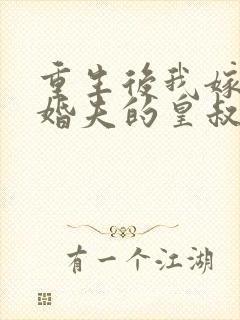 重生後我嫁
婚夫的皇叔
有一个江湖